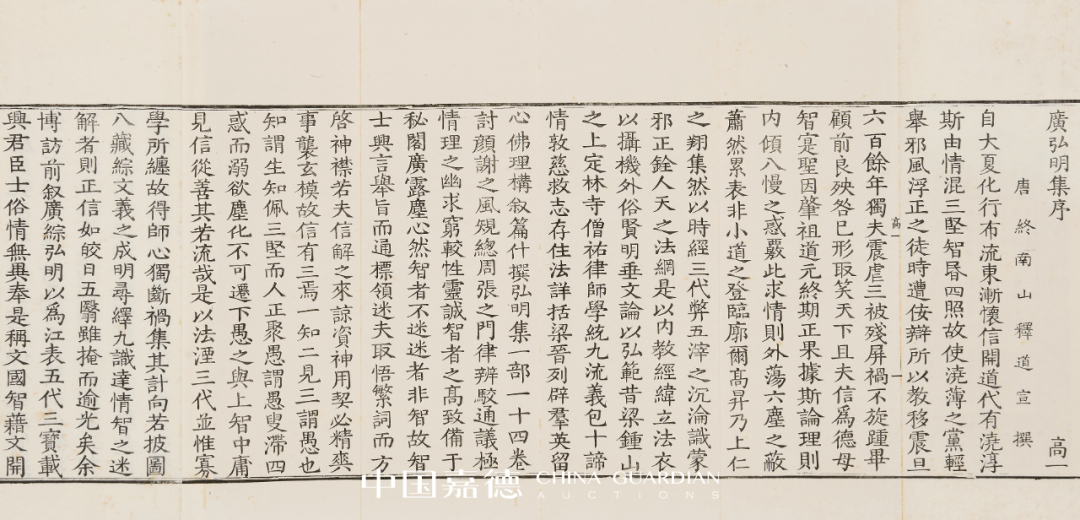 廣弘明集序
高一
唐終南山釋道宣撰
自大夏化行布流東漸懷信開道代有澆淳
斯由情混三堅智昏四照故使澆薄之黨輕
舉邪風浮正之徒時遭佞辯所以教移震旦
六百餘年獨夫震虐三被殘屏禍不旋踵畢
高一
一
顧前良殃咎已形取笑天下且夫信爲德母
智寔聖因肇祖道元終期正果據斯論理則
內傾八慢之惑覈此求情則外蕩六塵之蔽
蕭然累表非小道之登臨廓爾高昇乃上仁
之翔集然以時經三代弊五滓之沉淪識蒙
邪正銓人天之法網是以內教經緯立法衣
以攝機外俗賢明垂文論以弘範昔梁鍾山
之上定林寺僧祐律師學統九流義包十諦
情敦慈救志存住法詳括梁晉列辟羣英留
心佛理構叙篇什撰弘明集一部一十四卷
討顏謝之風規總周張之門律辨駮通議極
情理之幽求窮較性靈誠智者之髙致備于
秘閣廣露塵心然智者不迷迷者非智故智
士興言舉旨而通標領迷夫取悟繁詞而方
啓神襟若夫信解之來諒資神用契必精爽
事襲玄模故信有三焉一知二見三謂愚也
知謂生知佩三堅而人正聚愚謂愚叟滯四
惑而溺欲塵化不可遷下愚之與上智中庸
見信從善其若流哉是以法湮三代並惟寡
學所纏故得師心獨斷禍集其計向若披圖
八藏綜文義之成明尋繹九識達情智之迷
解者則正信如皎日五翳雖掩而逾光矣余
博訪前叙廣綜弘明以爲江表五代三寶載
興君臣士俗情無異奉是稱文國智藉文開
中国嘉德 CHINA GUARDIAN
AUCTIONS